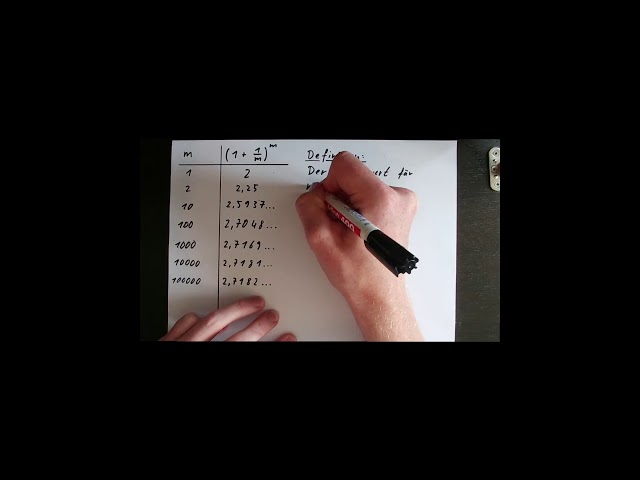 m (1 + 1/m)^m
1 2
2 2,25
10 2,5937...
100 2,7048...
1000 2,7169...
10000 2,7181...
100000 2,7182...
Der für